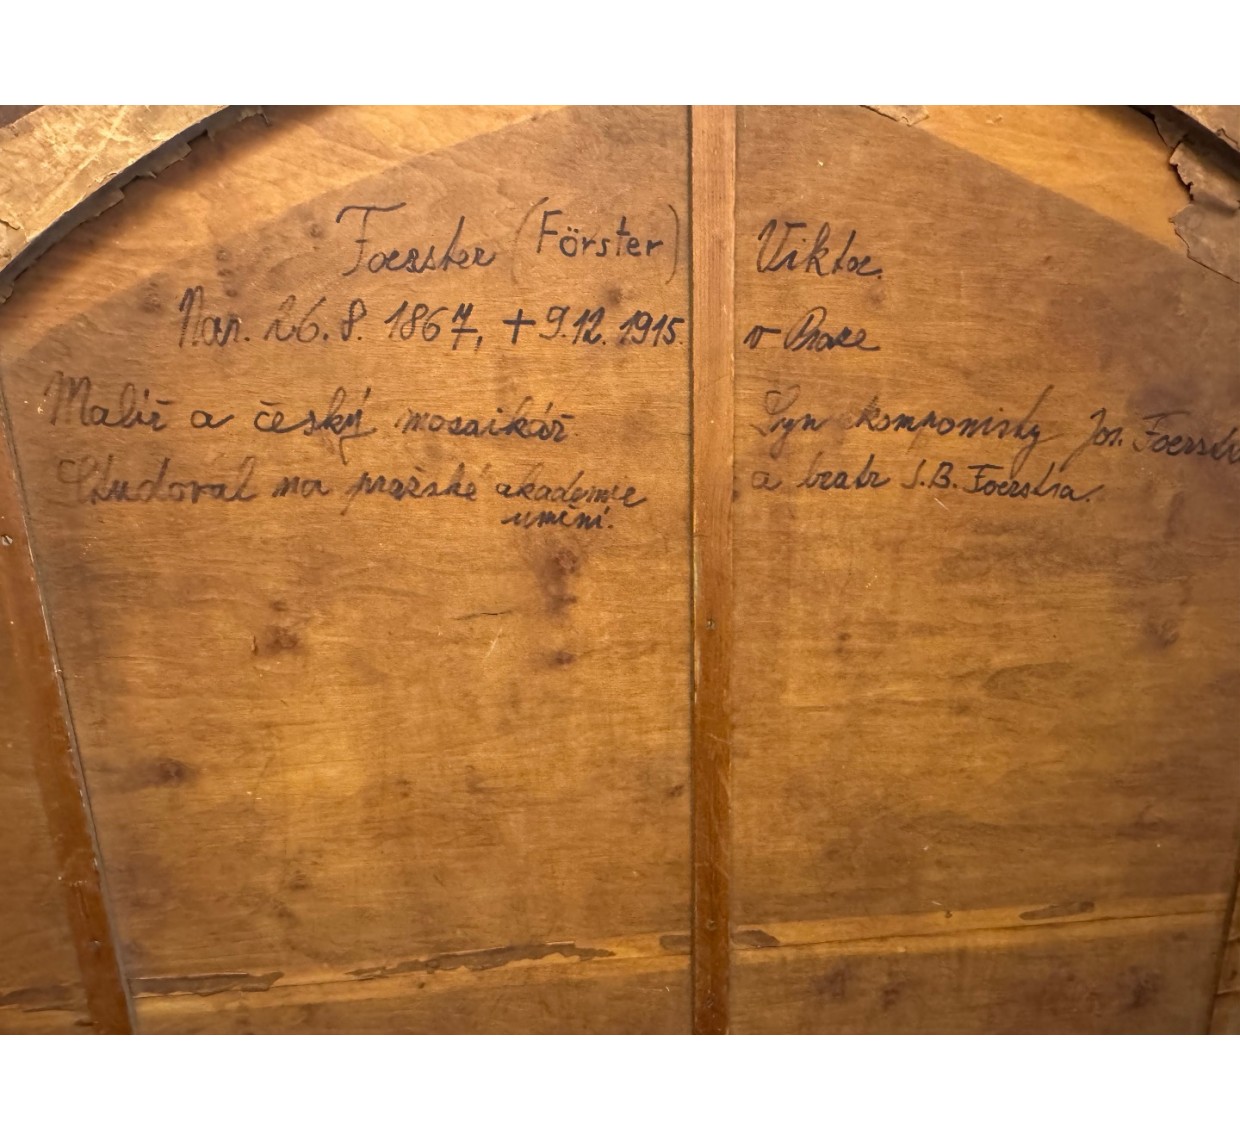 Foerster (Förster) Viktor.
Nar. 26. 8. 1867, + 9.12. 1915. v Praze
Malíř a český mozaikář. Syn komponisty Jos. Foerstra
Studoval na pražské akademie a bratr J.B. Foerstra.
umění.